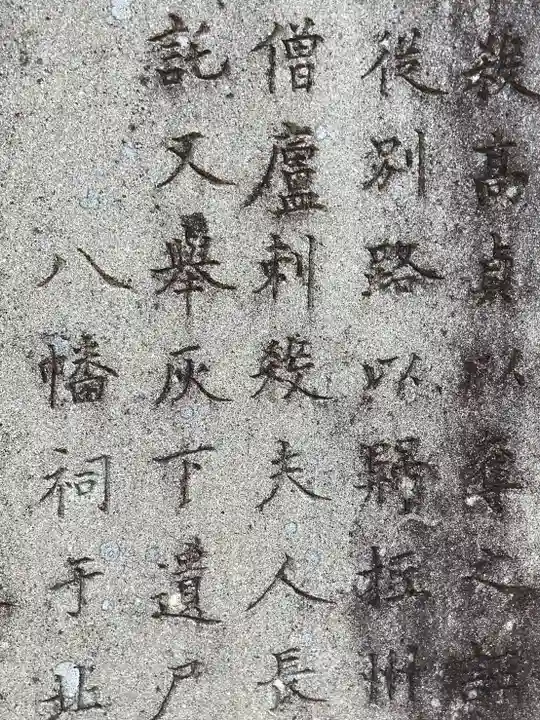 殺高貞以奪之詐
從別路以歸抂州
僧廬刺殺夫人長
託又舉灰下遺尸
八幡祠于北